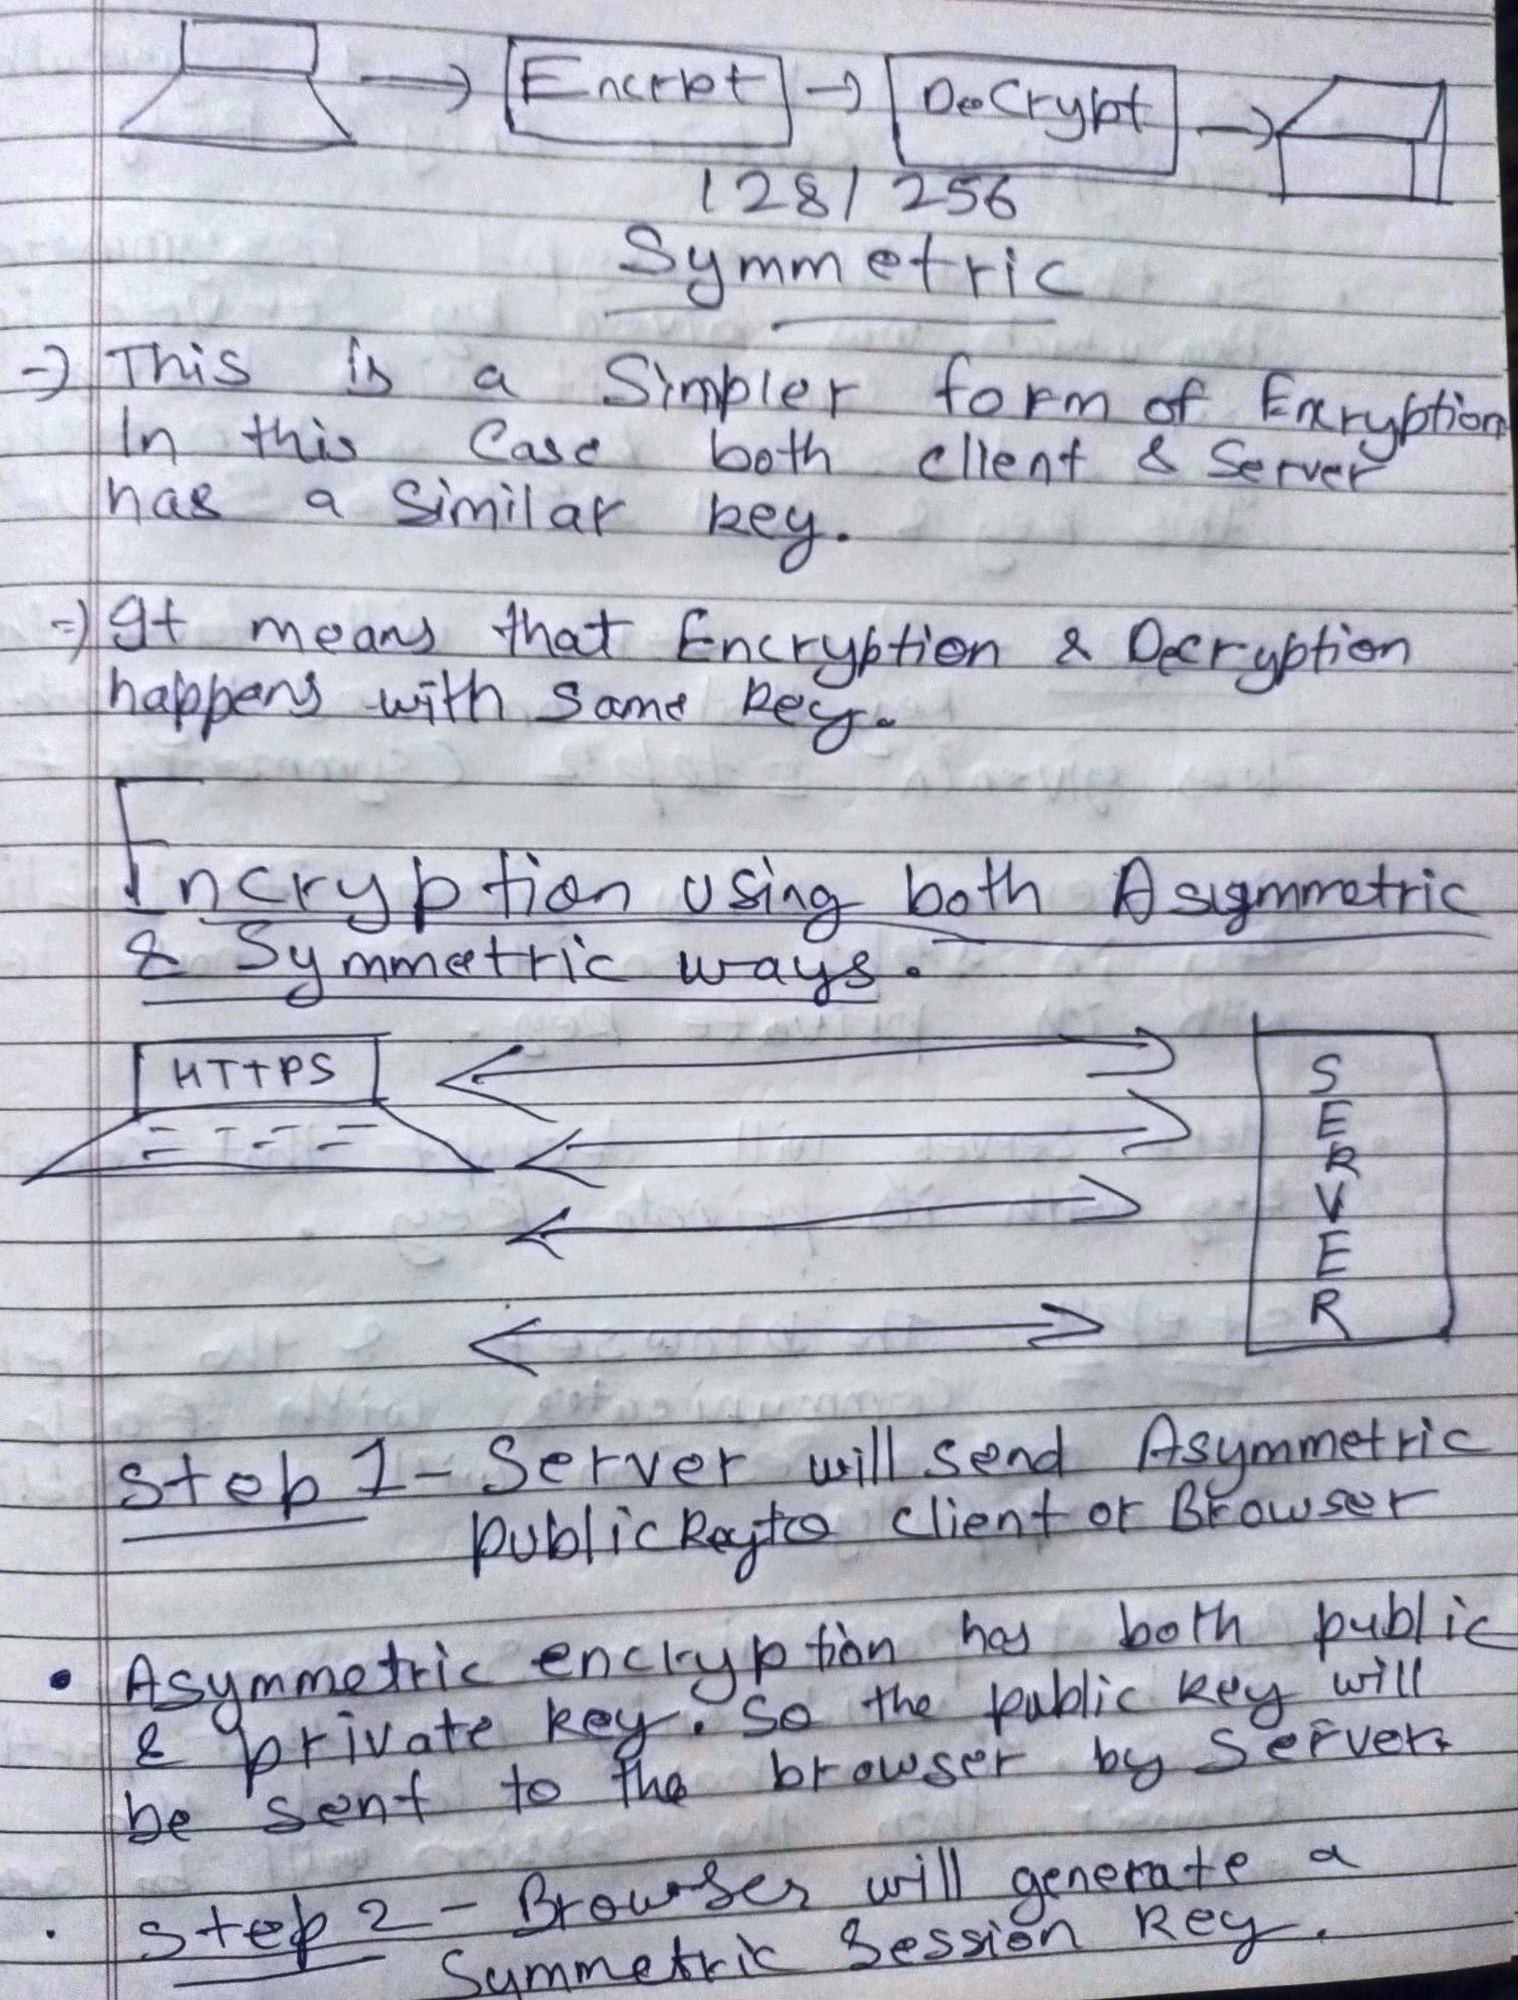 Encrpt
DeCrypt
128/256
Symmetric
This is a Simpler form of Encryption
In this Case both client & Server
has a Similar key.
It means that Encryption & Decryption
happens with Same key.
Encryption using both Asymmetric
& Symmetric ways.
HTTPS
SERVER
Step 1 - Server will send Asymmetric
public key to client or Browser
• Asymmetric encryption has both public
& private key. So the public key will
be sent to the browser by Server.
• Step 2 - Browser will generate a
Symmetric Session key.